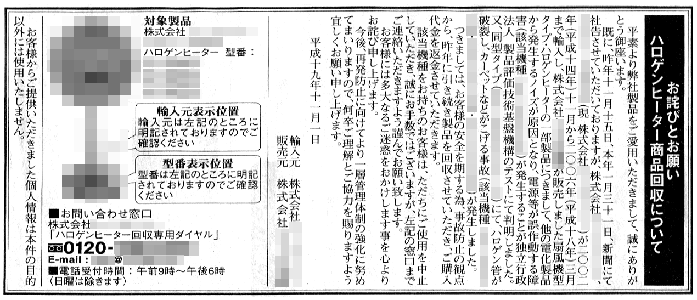 お詫びとお願い
ハロゲンヒーター商品回収について
平素より弊社製品をご愛用いただきまして、誠にありが
とう御座います。
既に、昨年十一月十五日、本年一月三十一日、新聞にて
社告させていただいておりますが、株式会社
(現 株式会社 )が二〇〇二
年(平成十四年)十一月から二〇〇六年(平成十八年)三月
まで輸入し、株式会社 が販売しました扇風機型
タイプハロゲンヒーター一部製品につきまして、他の電化製品
から発生するノイズが原因となり、電源等が誤作動する障
害(該当機種 )が発生することが独立行政
法人 製品評価技術基盤機構のテストにて判明しました。
又、同型タイプ( )にて、ハロゲン管が
破裂し、カーペットなどがこげる事故(該当機種
)が発生しました。
つきましては、お客様の安全を期する為、事故防止の観点
から、昨年より引き続き製品を回収させていただき、ご購入
代金を返金させていただきます。
該当機種をお持ちのお客様は、ただちにご使用を中止
していただき、誠にお手数ではございますが、左記の窓口まで
ご連絡いただきますよう謹んでお願い致します。
お客様には多大なるご迷惑をおかけします事を心より
お詫び申し上げます。
今後、再発防止に向けてより一層管理体制の強化に努め
てまいりますので、何卒ご理解とご協力を賜りますよう
宜しくお願い申し上げます。
平成十九年十一月一日
輸入元 株式会社
販売元 株式会社
対象製品
株式会社
ハロゲンヒーター 型番:
輸入元表示位置
輸入元は左記のところに
明記されておりますのでご
確認ください
型番表示位置
型番は左記のところに明記
されておりますのでご確認
ください
■お問い合わせ窓口
株式会社
「ハロゲンヒーター回収専用ダイヤル」
0120-
E-mail: @
■電話受付時間:午前9時〜午後6時
(日曜は除きます)
お客様からご提供いただきました個人情報は本件の目的
以外には使用いたしません。